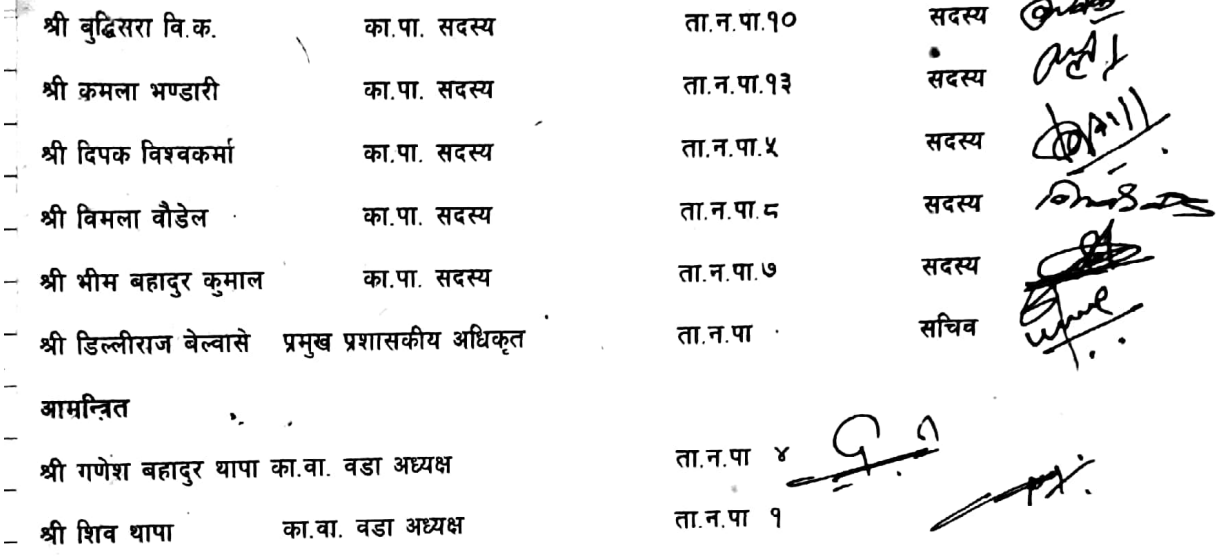 श्री बुद्धिसरा वि.क. का.पा. सदस्य ता.न.पा.१० सदस्य
श्री कमला भण्डारी का.पा. सदस्य ता.न.पा.१३ सदस्य
श्री दिपक विश्वकर्मा का.पा. सदस्य ता.न.पा.५ सदस्य
श्री विमला वौडेल का.पा. सदस्य ता.न.पा.८ सदस्य
श्री भीम बहादुर कुमाल का.पा. सदस्य ता.न.पा.७ सदस्य
श्री डिल्लीराज बेल्वासे प्रमुख प्रशासकीय अधिकृत ता.न.पा सचिव
आमन्त्रित
श्री गणेश बहादुर थापा का.वा. वडा अध्यक्ष ता.न.पा ४
श्री शिव थापा का.वा. वडा अध्यक्ष ता.न.पा १